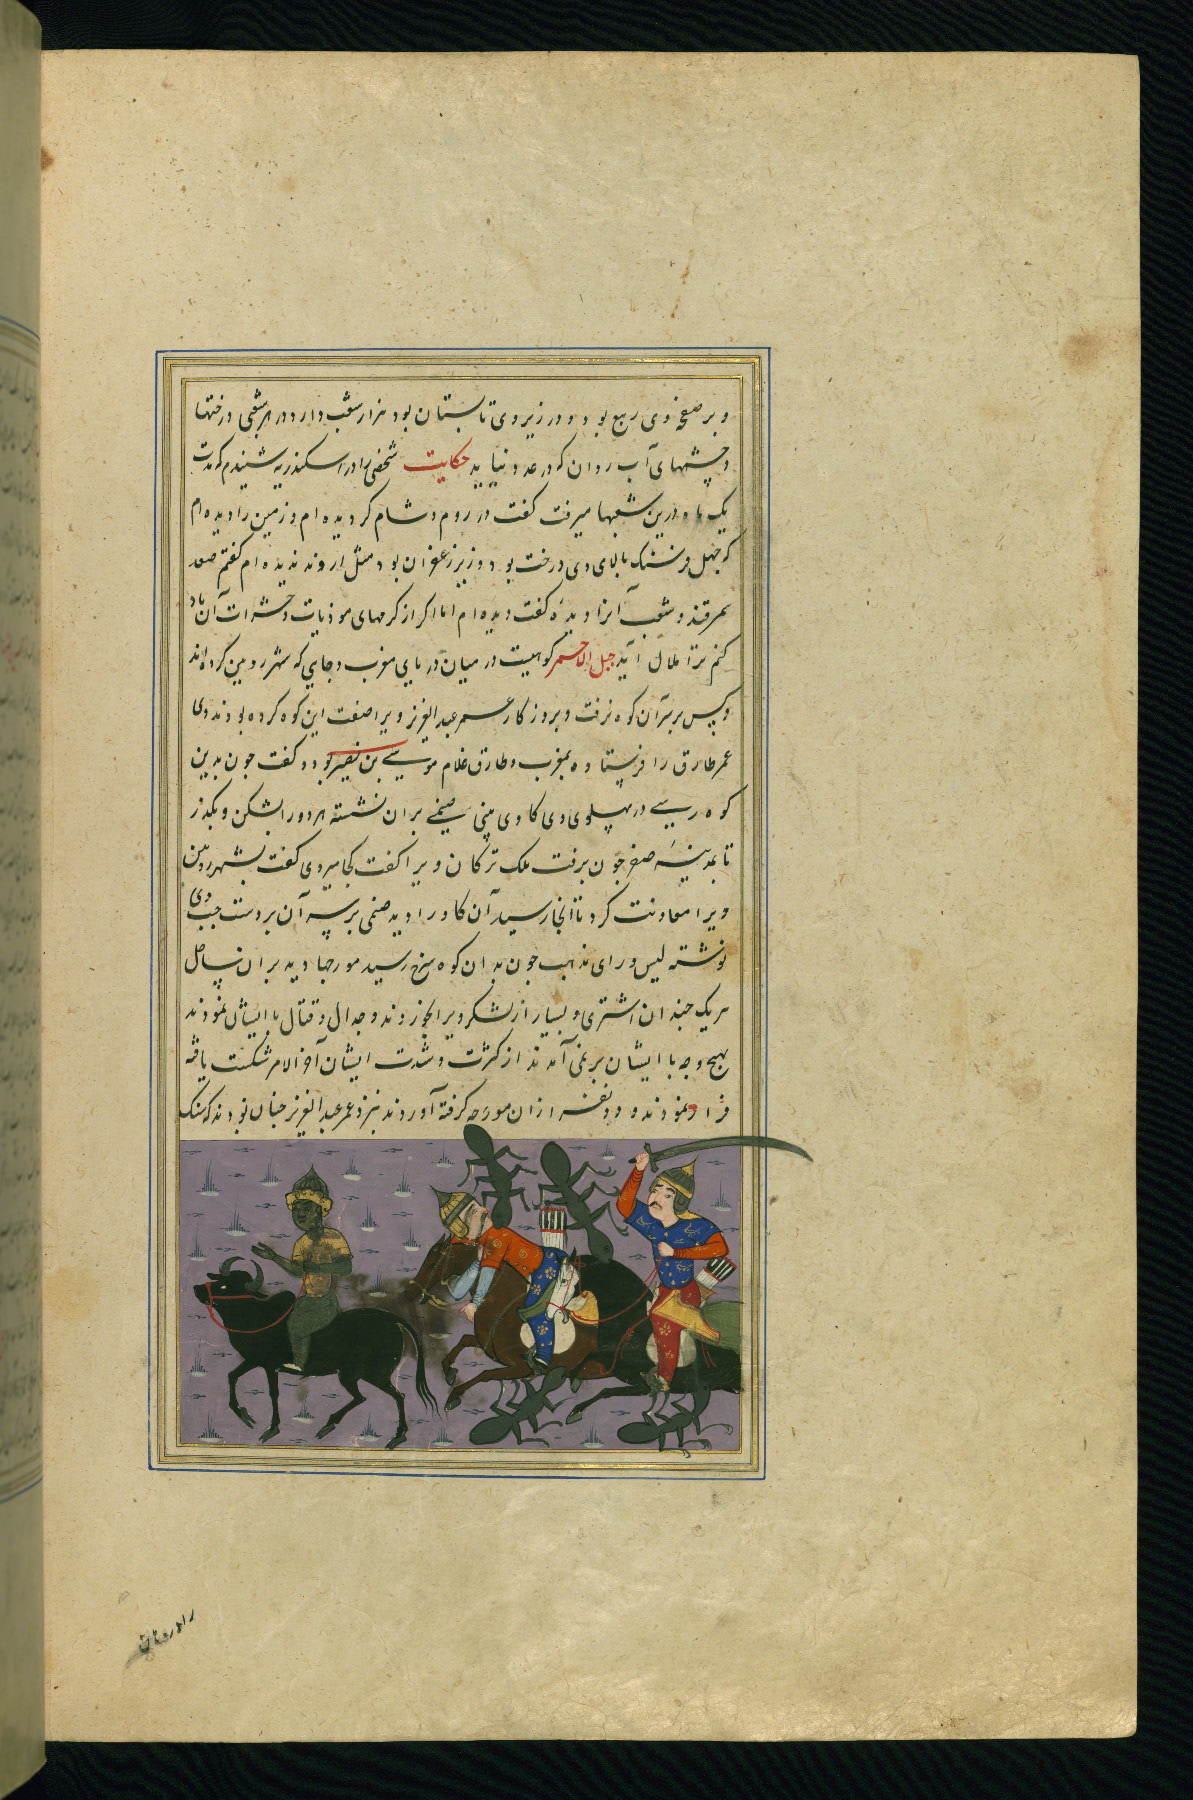 و بر صفحهٔ وی ربیع بود و در زیر وی تابستان بود هزار شعب دارد در هر شعبی درختها
و چشمهای آب روان که در عدد نیاید حکایت شخصی را در اسکندریه شنیدم که مدت
یک ماه درین شعبها میرفت گفت در روم و شام گردیده ام و زمین را دیده ام
که چهل فرسنگ بالای وی درخت بود و زیر زعفران بود مثل اروند ندیده ام گفتم صغد
سمرقند و شعب آنرا دیدهٔ گفت دیده ام اما اگر از کرمهای موذیات و حشرات آن یاد
کنم ترا ملال آید جبل الاحمر کوهیست در میان دریای مغرب و جایی که شهر رومین کرده اند
و کس بر سر آن کوه نرفت و بروزکار عمر عبد العزیز ویرا صفت این کوه کرده بودند وی
عمر طارق را فرستاده بمغرب و طارق غلام موسی بن نصیر بود و گفت چون بدین
کوه رسی در پهلوی وی کاوی بینی صنمی بران نشسته هر دو را بشکن و بگذر
تا بمدینهٔ صفر چون برفت ملک ترکان ویرا گفت کجا میروی گفت بشهر رویین
ویرا معاونت کرد تا آنجا رسید آن کاو را دید صنمی بر سه آن بر دست چپ وی
نوشته لیس ورای مذهب چون بدان کوه سرخ رسید مورچها دید بران
هر یک چندان اشتری و بسیار از لشکر ویرا بخوردند و جدال و قتال با ایشان نمودند
بهیچ وجه با ایشان بر نمی آمدند از کثرت و شدت ایشان آخر الامر شکست یافته
فرار نمودند و دو نفسه ازان مورچه گرفته آوردند نزد عمر عبد العزیز چنان بودند که سنک
را در دهان